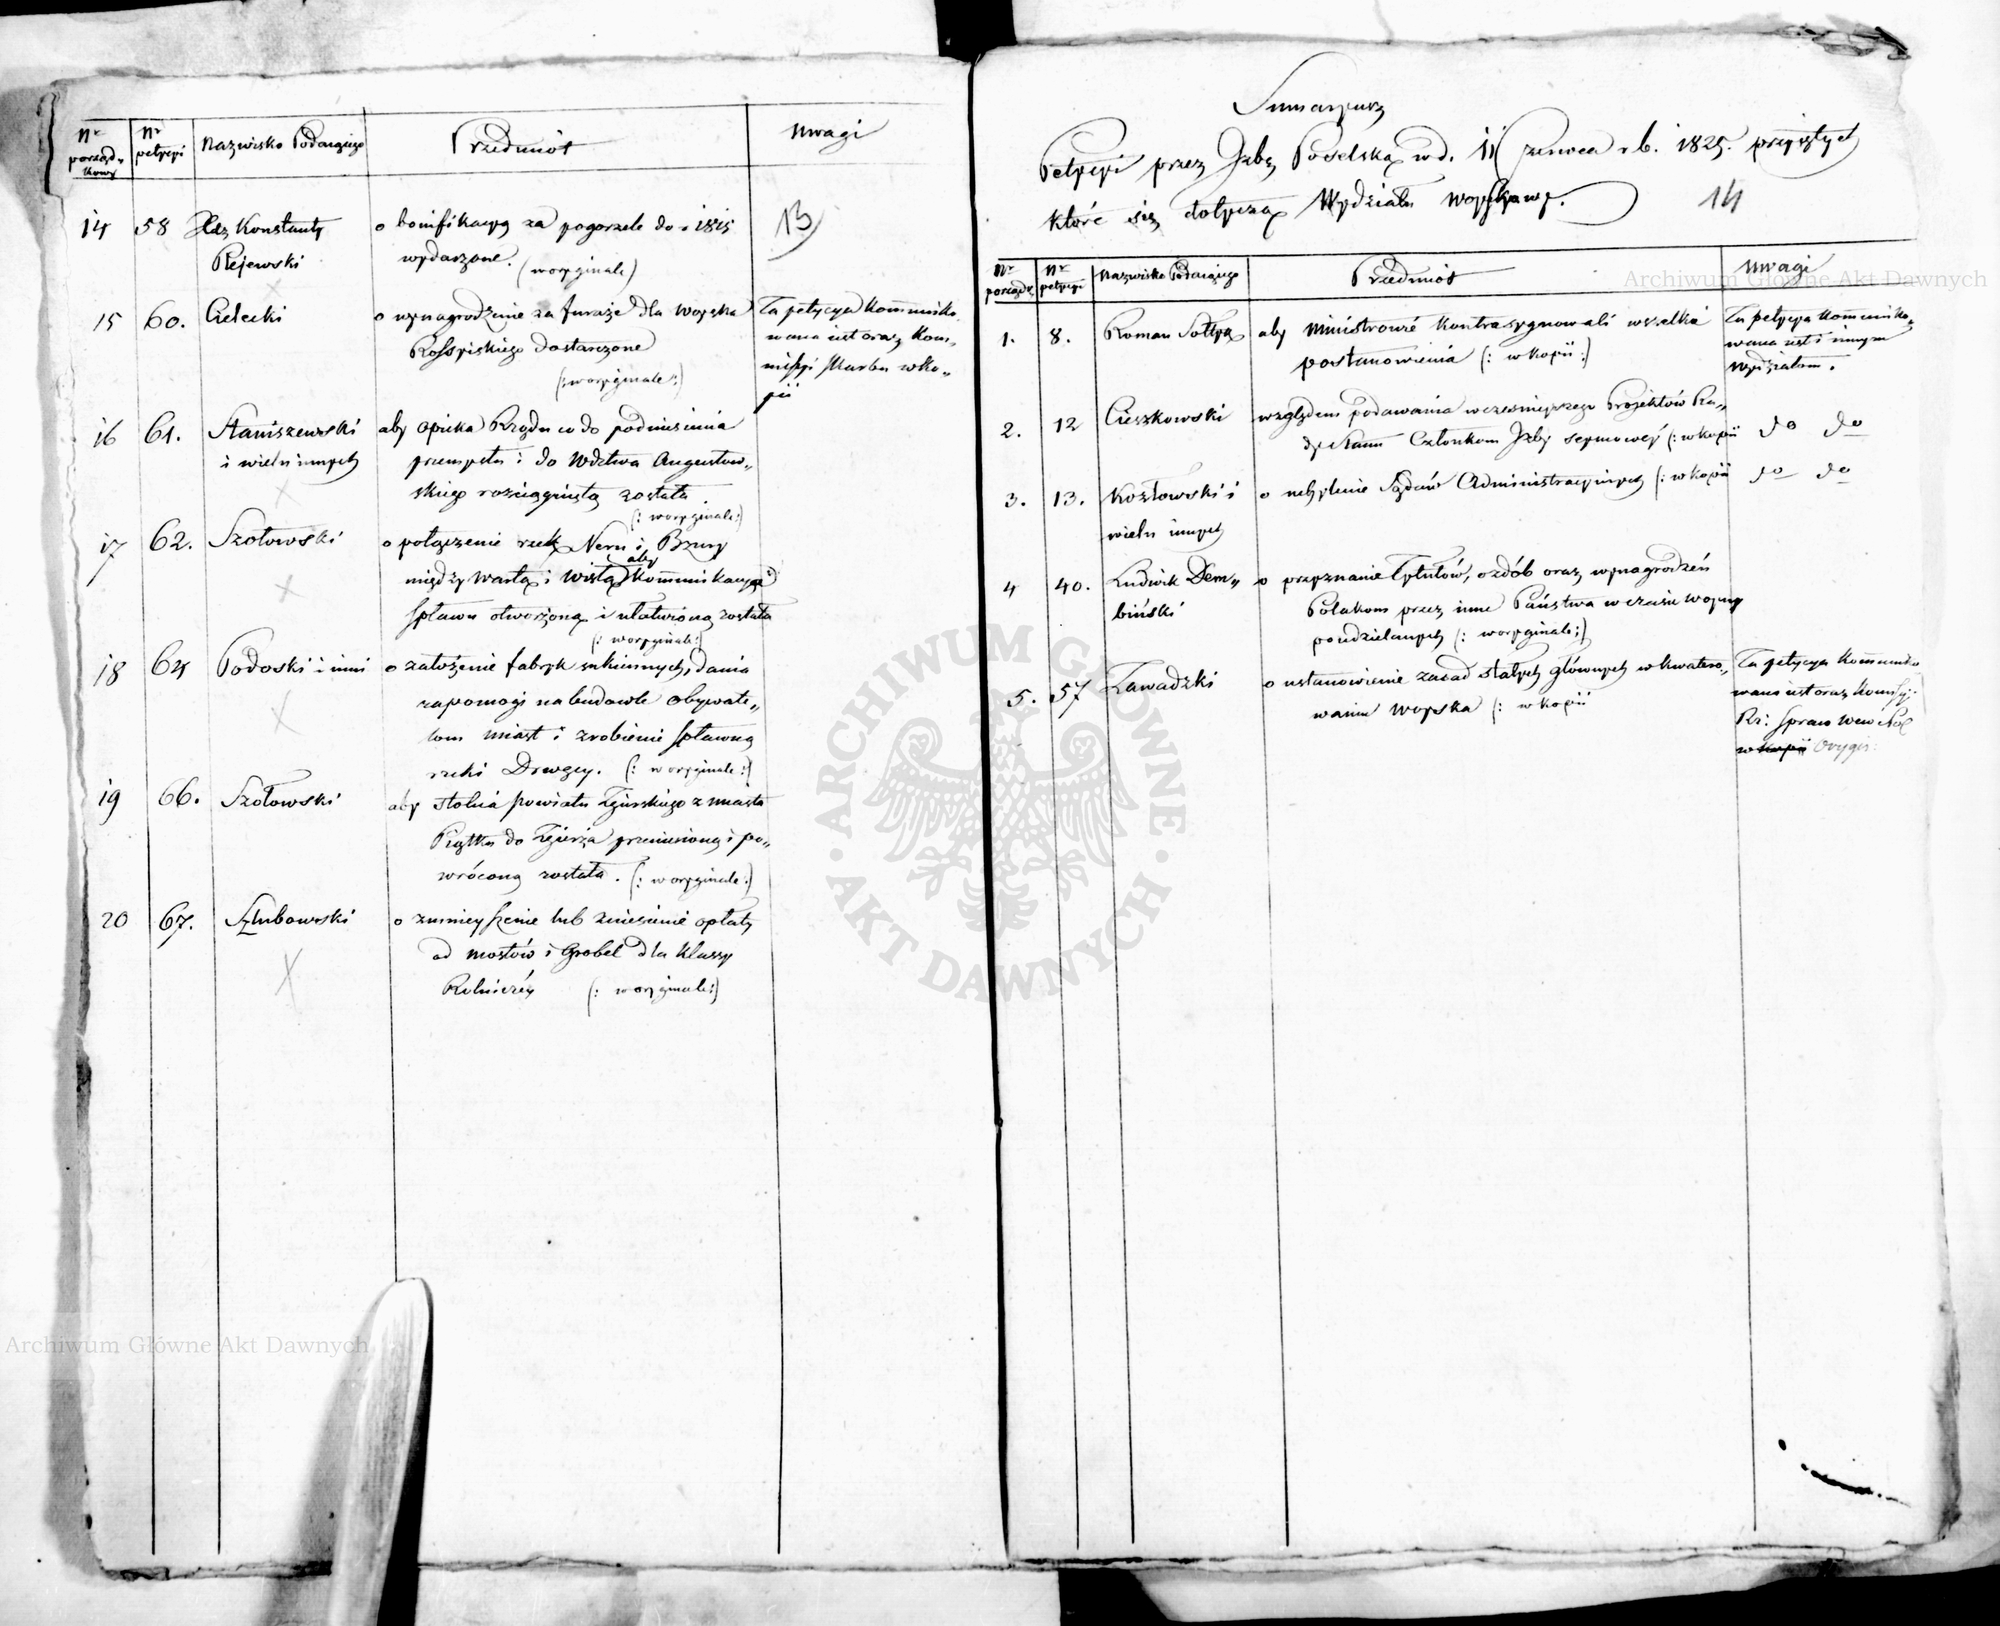 Nr porządkowy | Nr petycyi | Nazwisko Podaiącego | Przedmiót | Uwagi
14 | 58 | Xdz Konstanty | o bonifikacyą za pogorzele do r 1815 | 13
Rejewski | wydarzone. (w oryginale)
15 | 60. | Cielecki | o wynagrodzenie za furaże dla woyska | Ta petycya kommuniko-
Rossyiskiego dostarczone | wana iest oraz Kom„
(: w oryginale :) | missyi Skarbu w ko„
pii
16 | 61. | Staniszewski | aby opieka Rządu co do podniesienia
i wielu innych | przemysłu i do Wdztwa Augustow„
skiego rozciągniętą została.
(: w oryginale :)
17 | 62. | Szołowski | o połączenie rzek Neru i Bzury
między Wartą i Wisłą aby kommunikacya
spławu otworzoną i ułatwioną została
(: w oryginale :)
18 | 64 | Podoski i inni | o założenie fabryk sukiennych, dania
zapomogi na budowle obywate„
lom miast i zrobienie spławną
rzeki Drwęcy. (: w oryginale :)
19 | 66. | Szołowski | aby stolica powiatu Zgierskiego z miasta
Piątku do Zgierza przeniesioną i po„
wróconą została. (: w oryginale :)
20 | 67. | Szlubowski | o zmnieyszenie lub zniesienie opłaty
od mostów i Grobel dla klassy
Rolniczéy (: w oryginale :)
Summaryusz
Petycyi przez Izbę Poselską w d. 11 Czerwca r b. 1825. przyiętych
które się dotyczą Wydziału Woyskowego.
14
Nr porządk. | Nr petycyi | Nazwisko Podaiącego | Przedmiót | Uwagi
1. | 8. | Roman Sołtyk | aby Ministrowie kontrasygnowali wszelkie | Ta petycya kommuniko„
postanowienia (: w kopii :) | wana iest i innym
Wydziałom.
2. | 12 | Cieszkowski | względem podawania wcześnieyszego Projektów Rzą„
dowych Członkom Izby seymowéy (: w kopii | do do
3. | 13. | Kozłowski i | o uchylenie Sądów Administracyinych (: w kopii | do do
wielu innych
4 | 40. | Ludwik Dem„ | o przyznanie Tytułów, ozdób oraz wynagrodzeń
biński | Polakom przez inne Państwa w czasie woyny
poudzielanych (: w oryginale :)
5. | 57 | Zawadzki | o ustanowienie zasad stałych głównych w kwatero„ | Ta petycya kommuniko
waniu woyska (: w kopii | wana iest oraz Komissyi
Rz: Spraw Wew i Pol
w kopii Orygin:
Archiwum Główne Akt Dawnych
Archiwum Główne Akt Dawnych
ARCHIWUM GŁÓWNE
AKT DAWNYCH